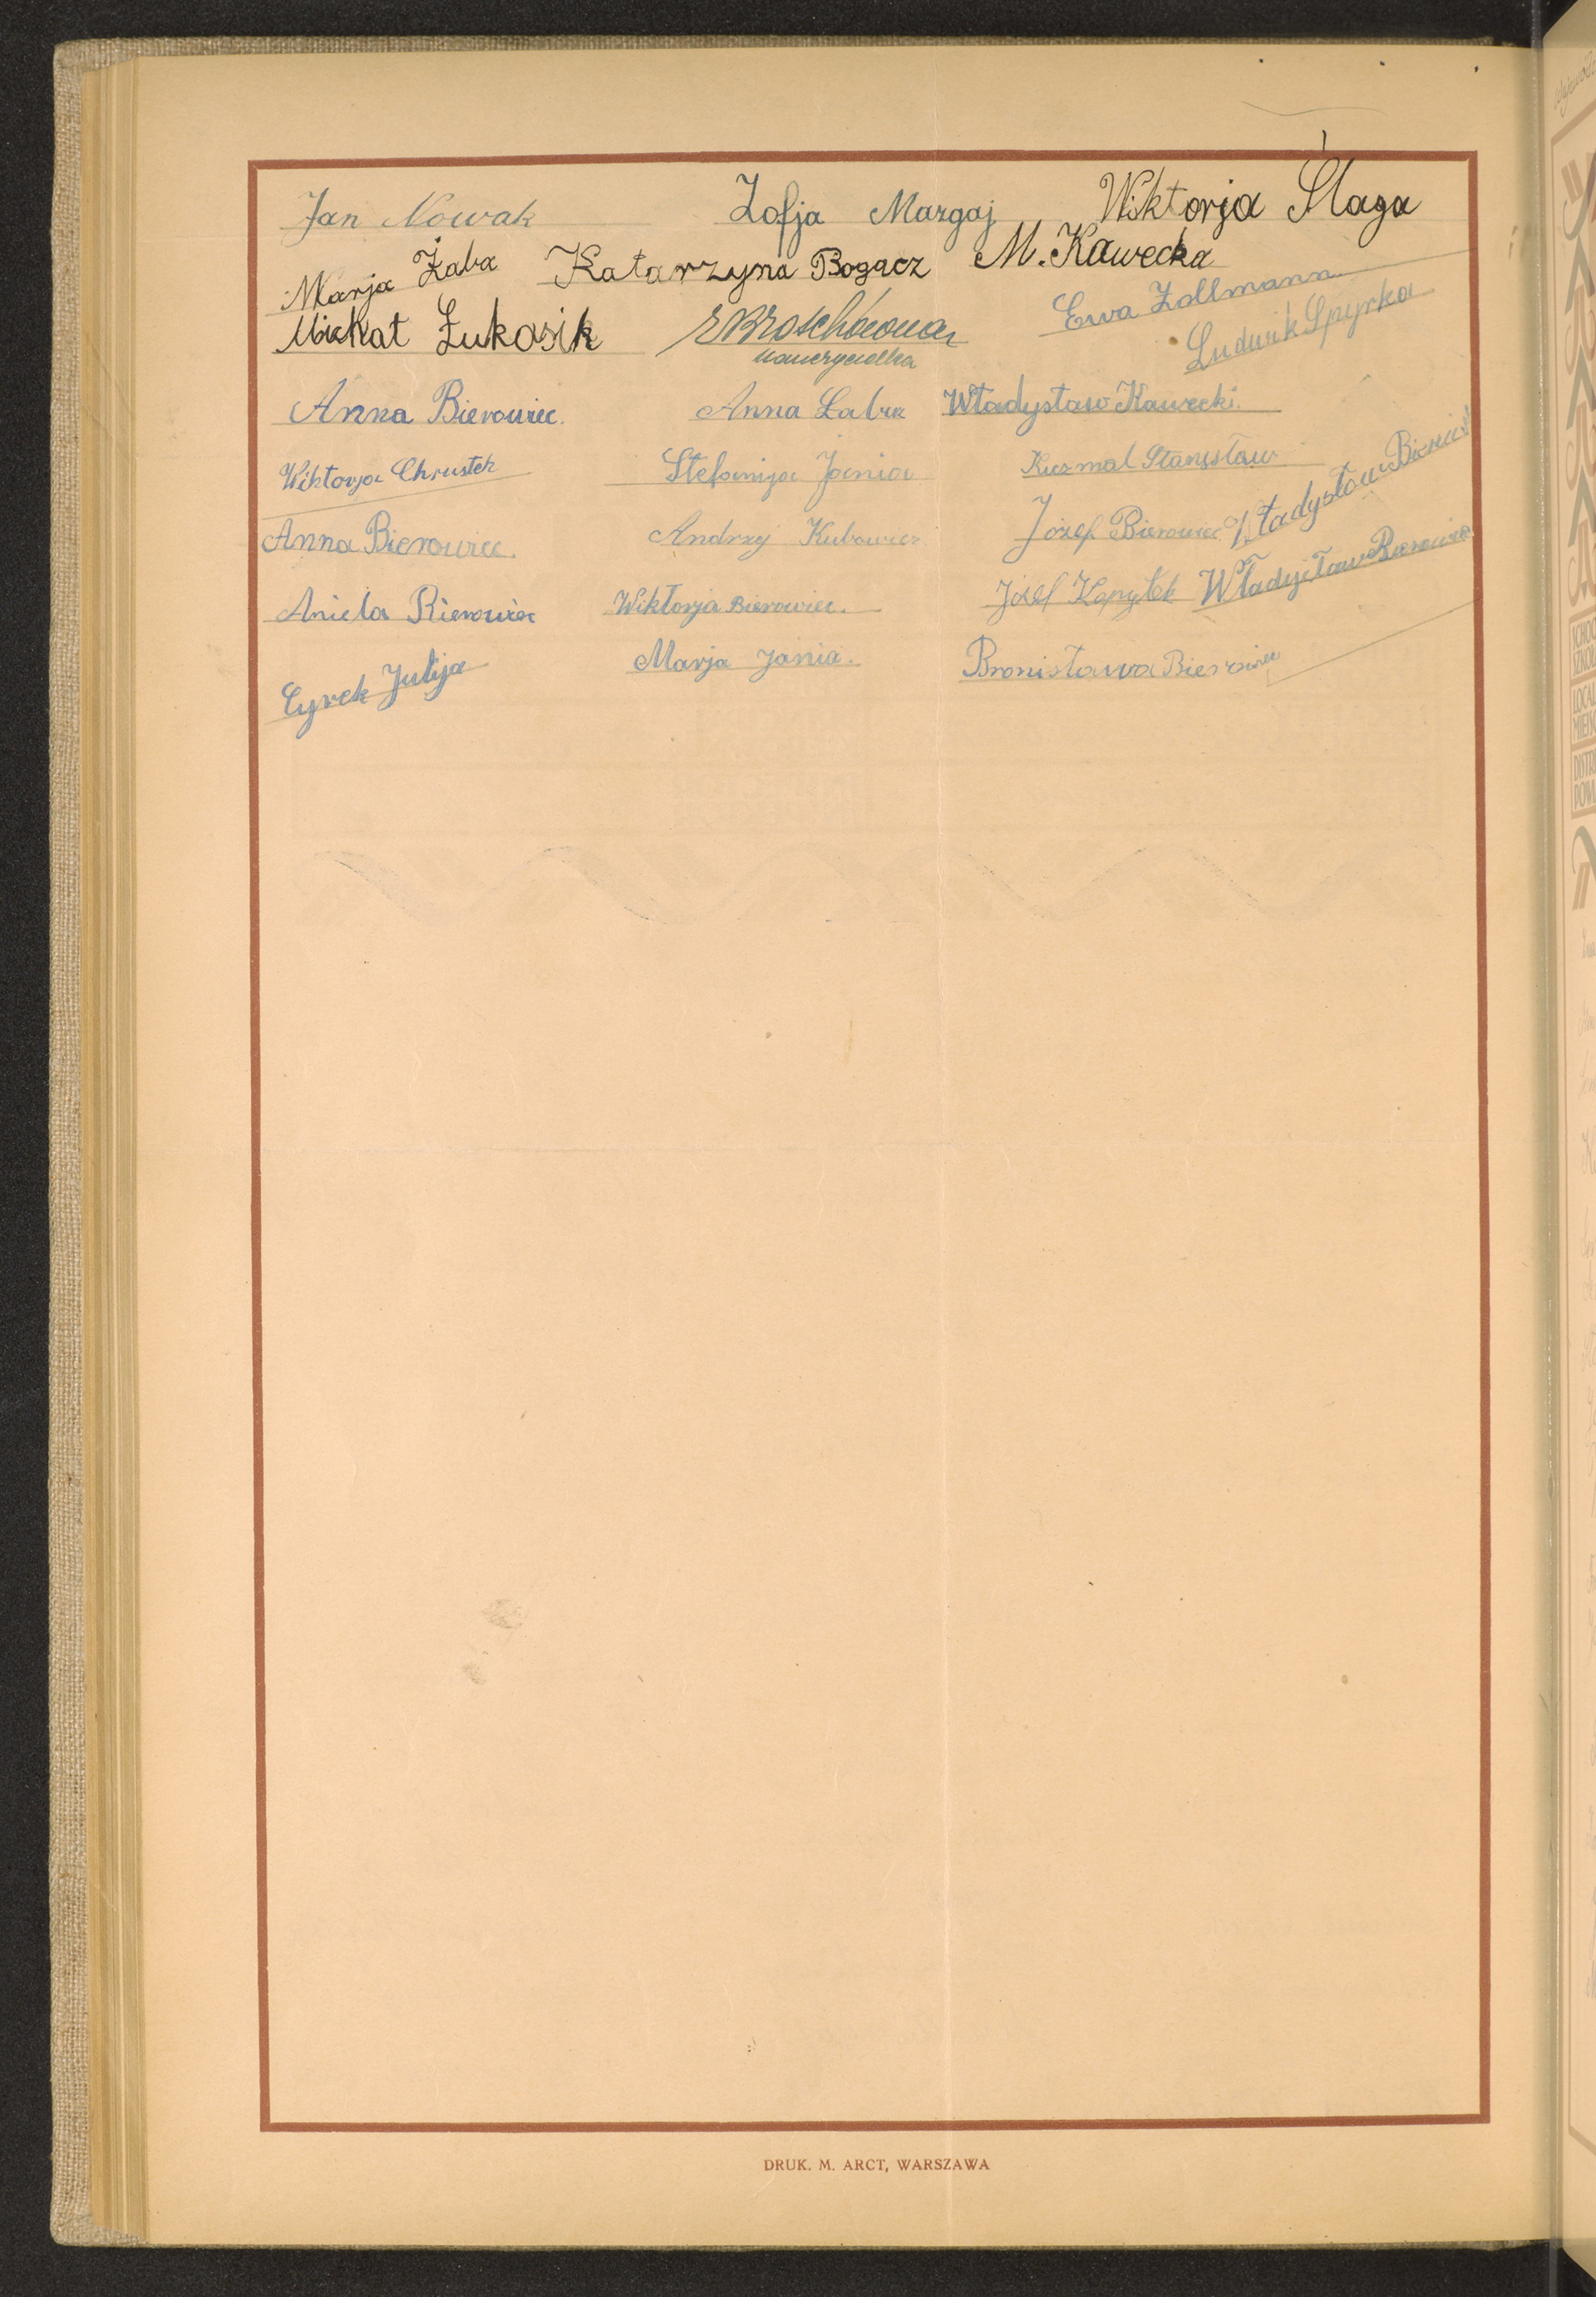 Jan Nowak Zofja Margaj Wiktorja Ślaga
Marja Żaba Katarzyna Bogacz M. Kawecka
Michał Łukasik nauczycielka Ewa Zollmann
Ludwik Spyrka
Anna Bierowiec. Anna Władysław Kawecki.
Wiktorja Chrustek Stefanija Jania Kuzmal Stanisław
Anna Bierowiec. Andrzy Kubowicz Józef Bierowiec Władysław Bierowiec
Aniela Bierowiec Wiktorja Bierowiec. Józef Kopytek Władysław Bierowiec
Cyrek Julija Marja Jania. Bronisława Bierowiec
DRUK. M. ARCT, WARSZAWA